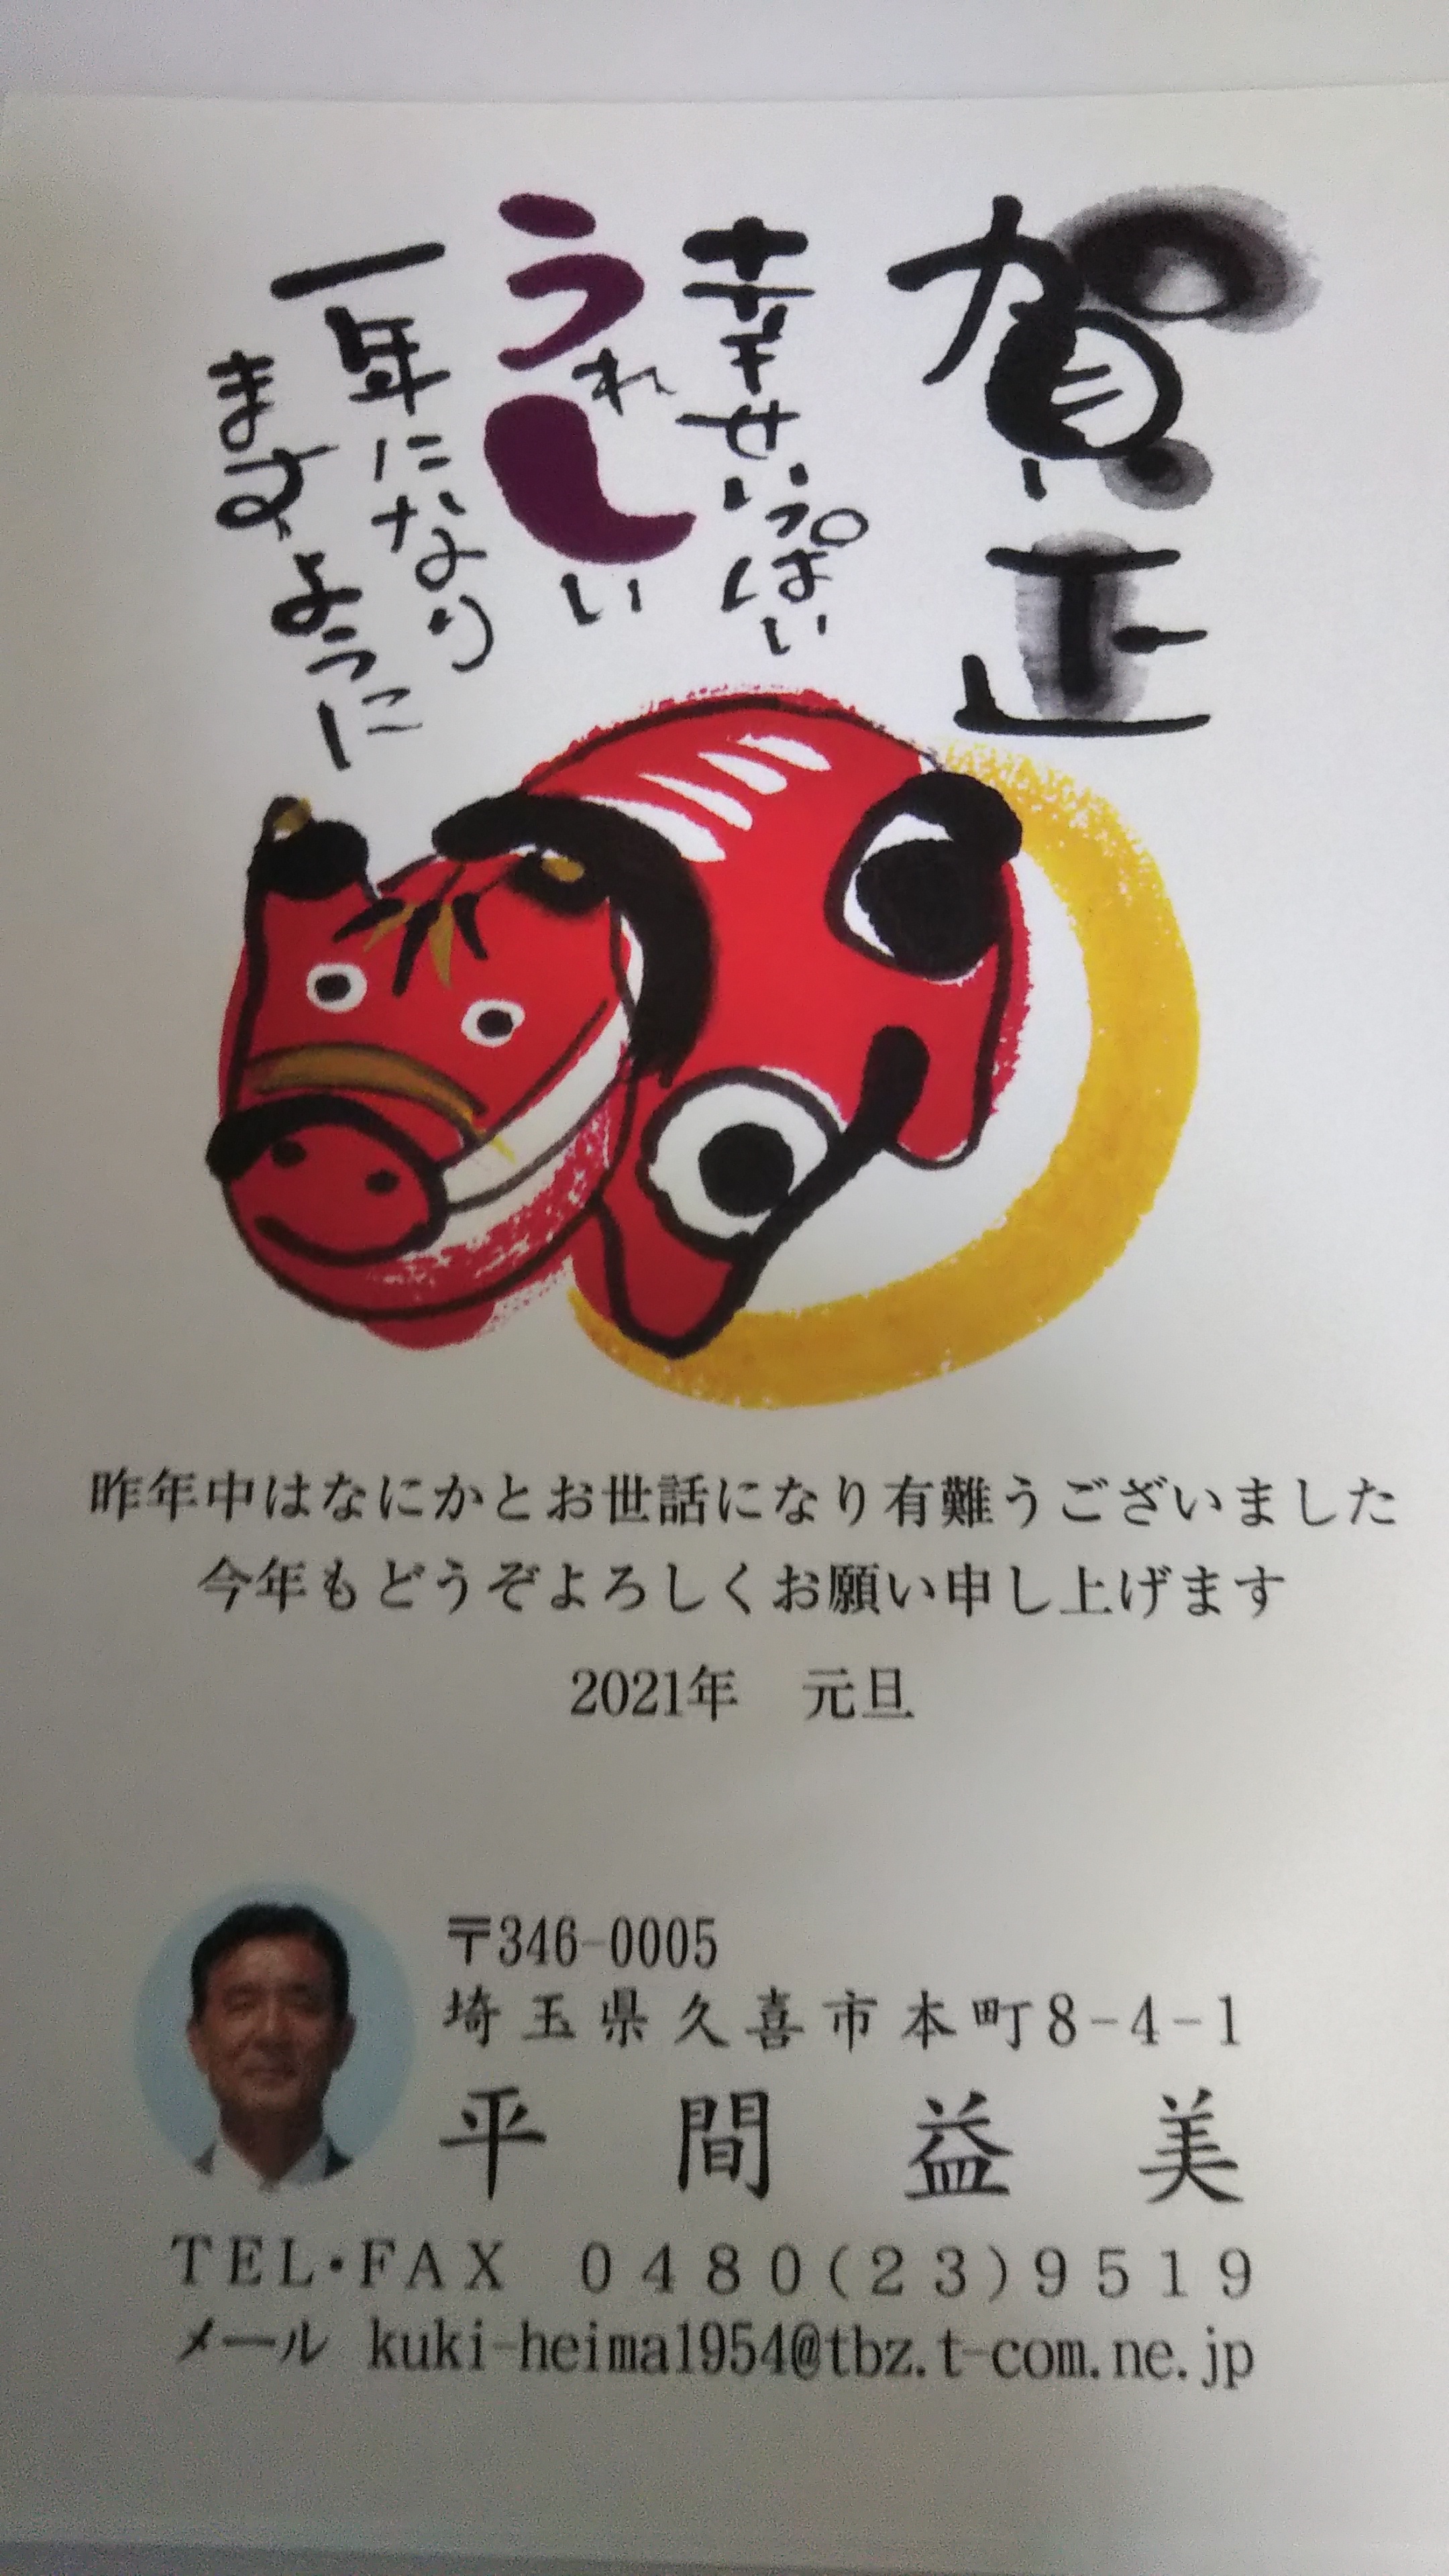 賀正
幸せいっぱい
うれしい
一年になり
ますように
昨年中はなにかとお世話になり有難うございました
今年もどうぞよろしくお願い申し上げます
2021年 元旦
〒346-0005
埼玉県久喜市本町8-4-1
平間益美
TEL・FAX 0480(23)9519
メール kuki-heima1954@tbz.t-com.ne.jp